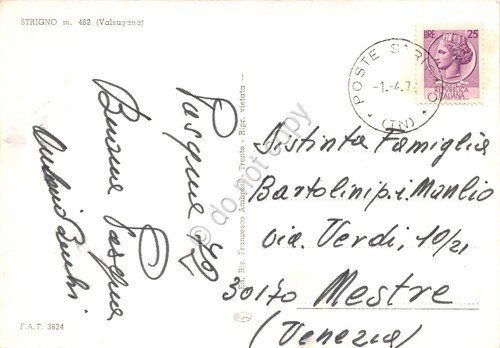 STRIGNO m. 462 (Valsugana)
Pasqua 72
Buona Pasqua
LIRE 25
POSTE ITALIANE
POSTE STRIGNO
-1.-4.7
(TN)
Distinta Famiglia
Bartolini p.i. Manlio
Via. Verdi, 10/21
30170 Mestre
(Venezia)
Ed. Ris. Francesco Ambrosi Trento - Ripr. vietata -
F.A.T. 3624
© do not copy